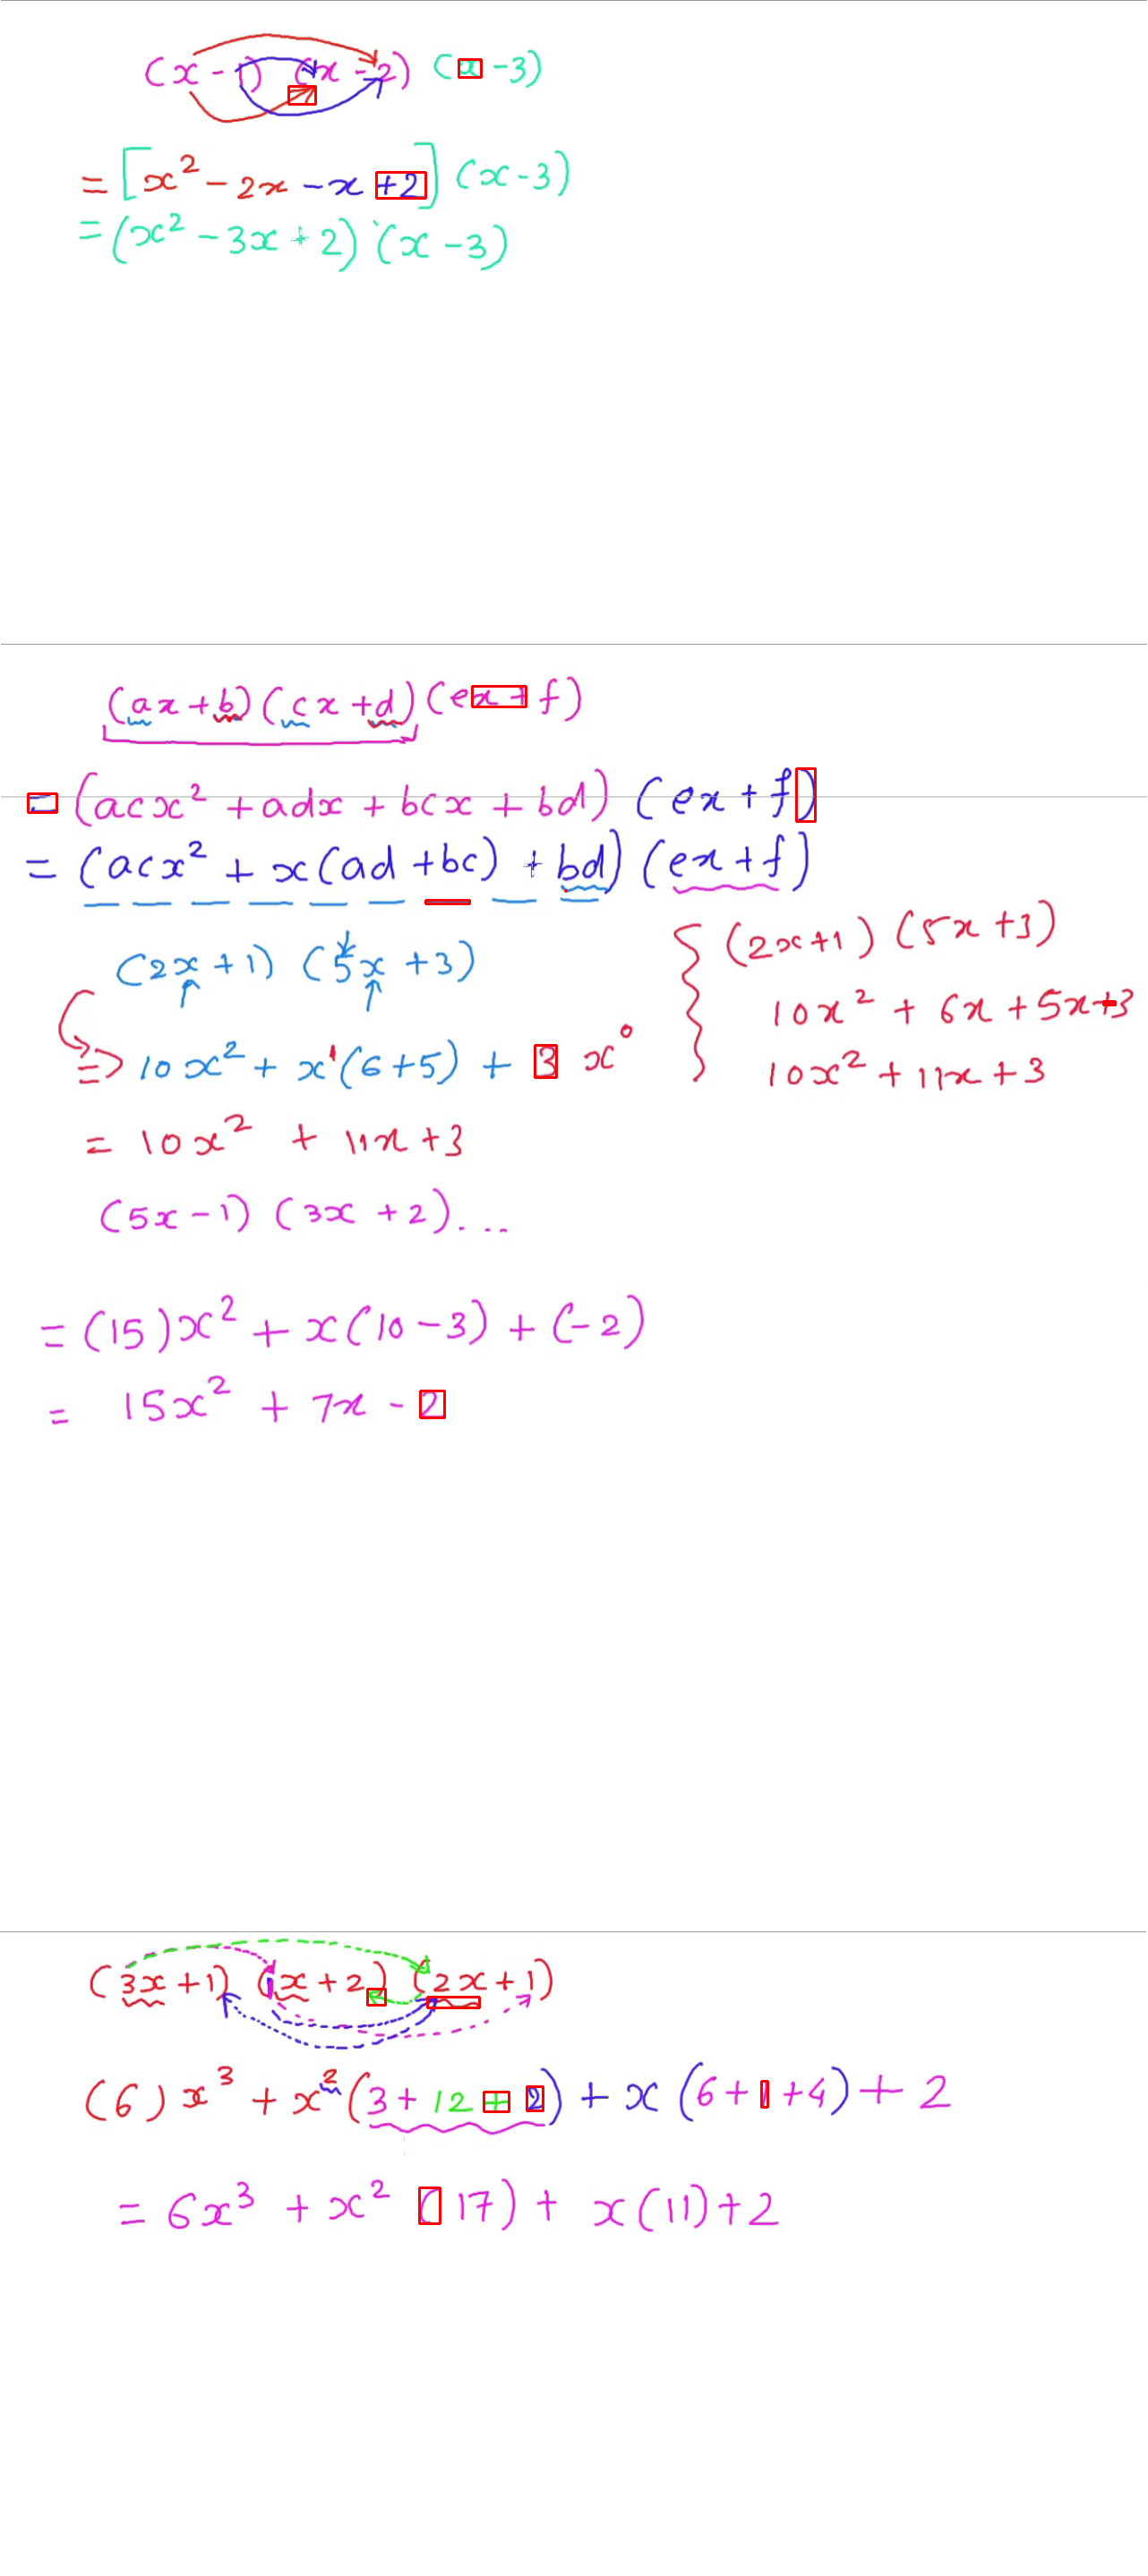 (x - 1) (x - 2) (x - 3)
= [x² - 2x - x + 2] (x - 3)
= (x² - 3x + 2) (x - 3)
(ax + b) (cx + d) (ex + f)
= (acx² + adx + bcx + bd) (ex + f)
= (acx² + x(ad + bc) + bd) (ex + f)
(2x + 1) (5x + 3)
=> 10x² + x¹(6 + 5) + 3 x⁰
= 10x² + 11x + 3
{ (2x + 1) (5x + 3)
10x² + 6x + 5x + 3
10x² + 11x + 3
(5x - 1) (3x + 2) ...
= (15)x² + x(10 - 3) + (-2)
= 15x² + 7x - 2
(3x + 1) (1x + 2) (2x + 1)
(6) x³ + x² (3 + 12 + 2) + x (6 + 1 + 4) + 2
= 6x³ + x² (17) + x(11) + 2